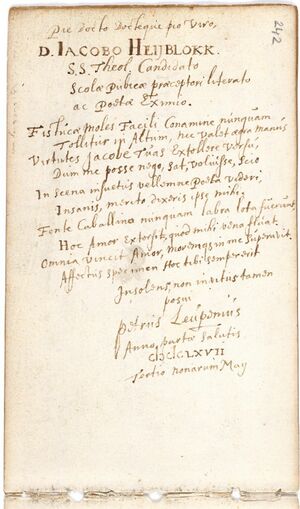 242
Pie docto Docteque pio Viro,
D. IACOBO HEIJBLOKK.
S.S. Theol. Candidato
Scolæ Publicæ præceptori literato
ac Poetæ Eximio.
Fistucæ moles Facili Conamine nunquam
Tollitur in Altum, nec Valet ægra manus
Virtutes Jacobe Tuas Extollere Versu,
Dum me posse nego, Sat, Voluisse, Scio
In Scena insuetus vellemne Poeta Videri,
Insanis, merito dixeris ipse mihi.
Fonte Caballino nunquam labra lota fuerunt,
Hoc Amor Extorsit, quod mihi vena fluat.
Omnia Vincit Amor, moremque in me Superavit.
Affectus specimen Hoc tibi semper erit
Insolens, non invitus tamen
posui
Petrus Leupenius
Anno partæ Salutis
CIƆIƆCLXVII
tertio nonarum May